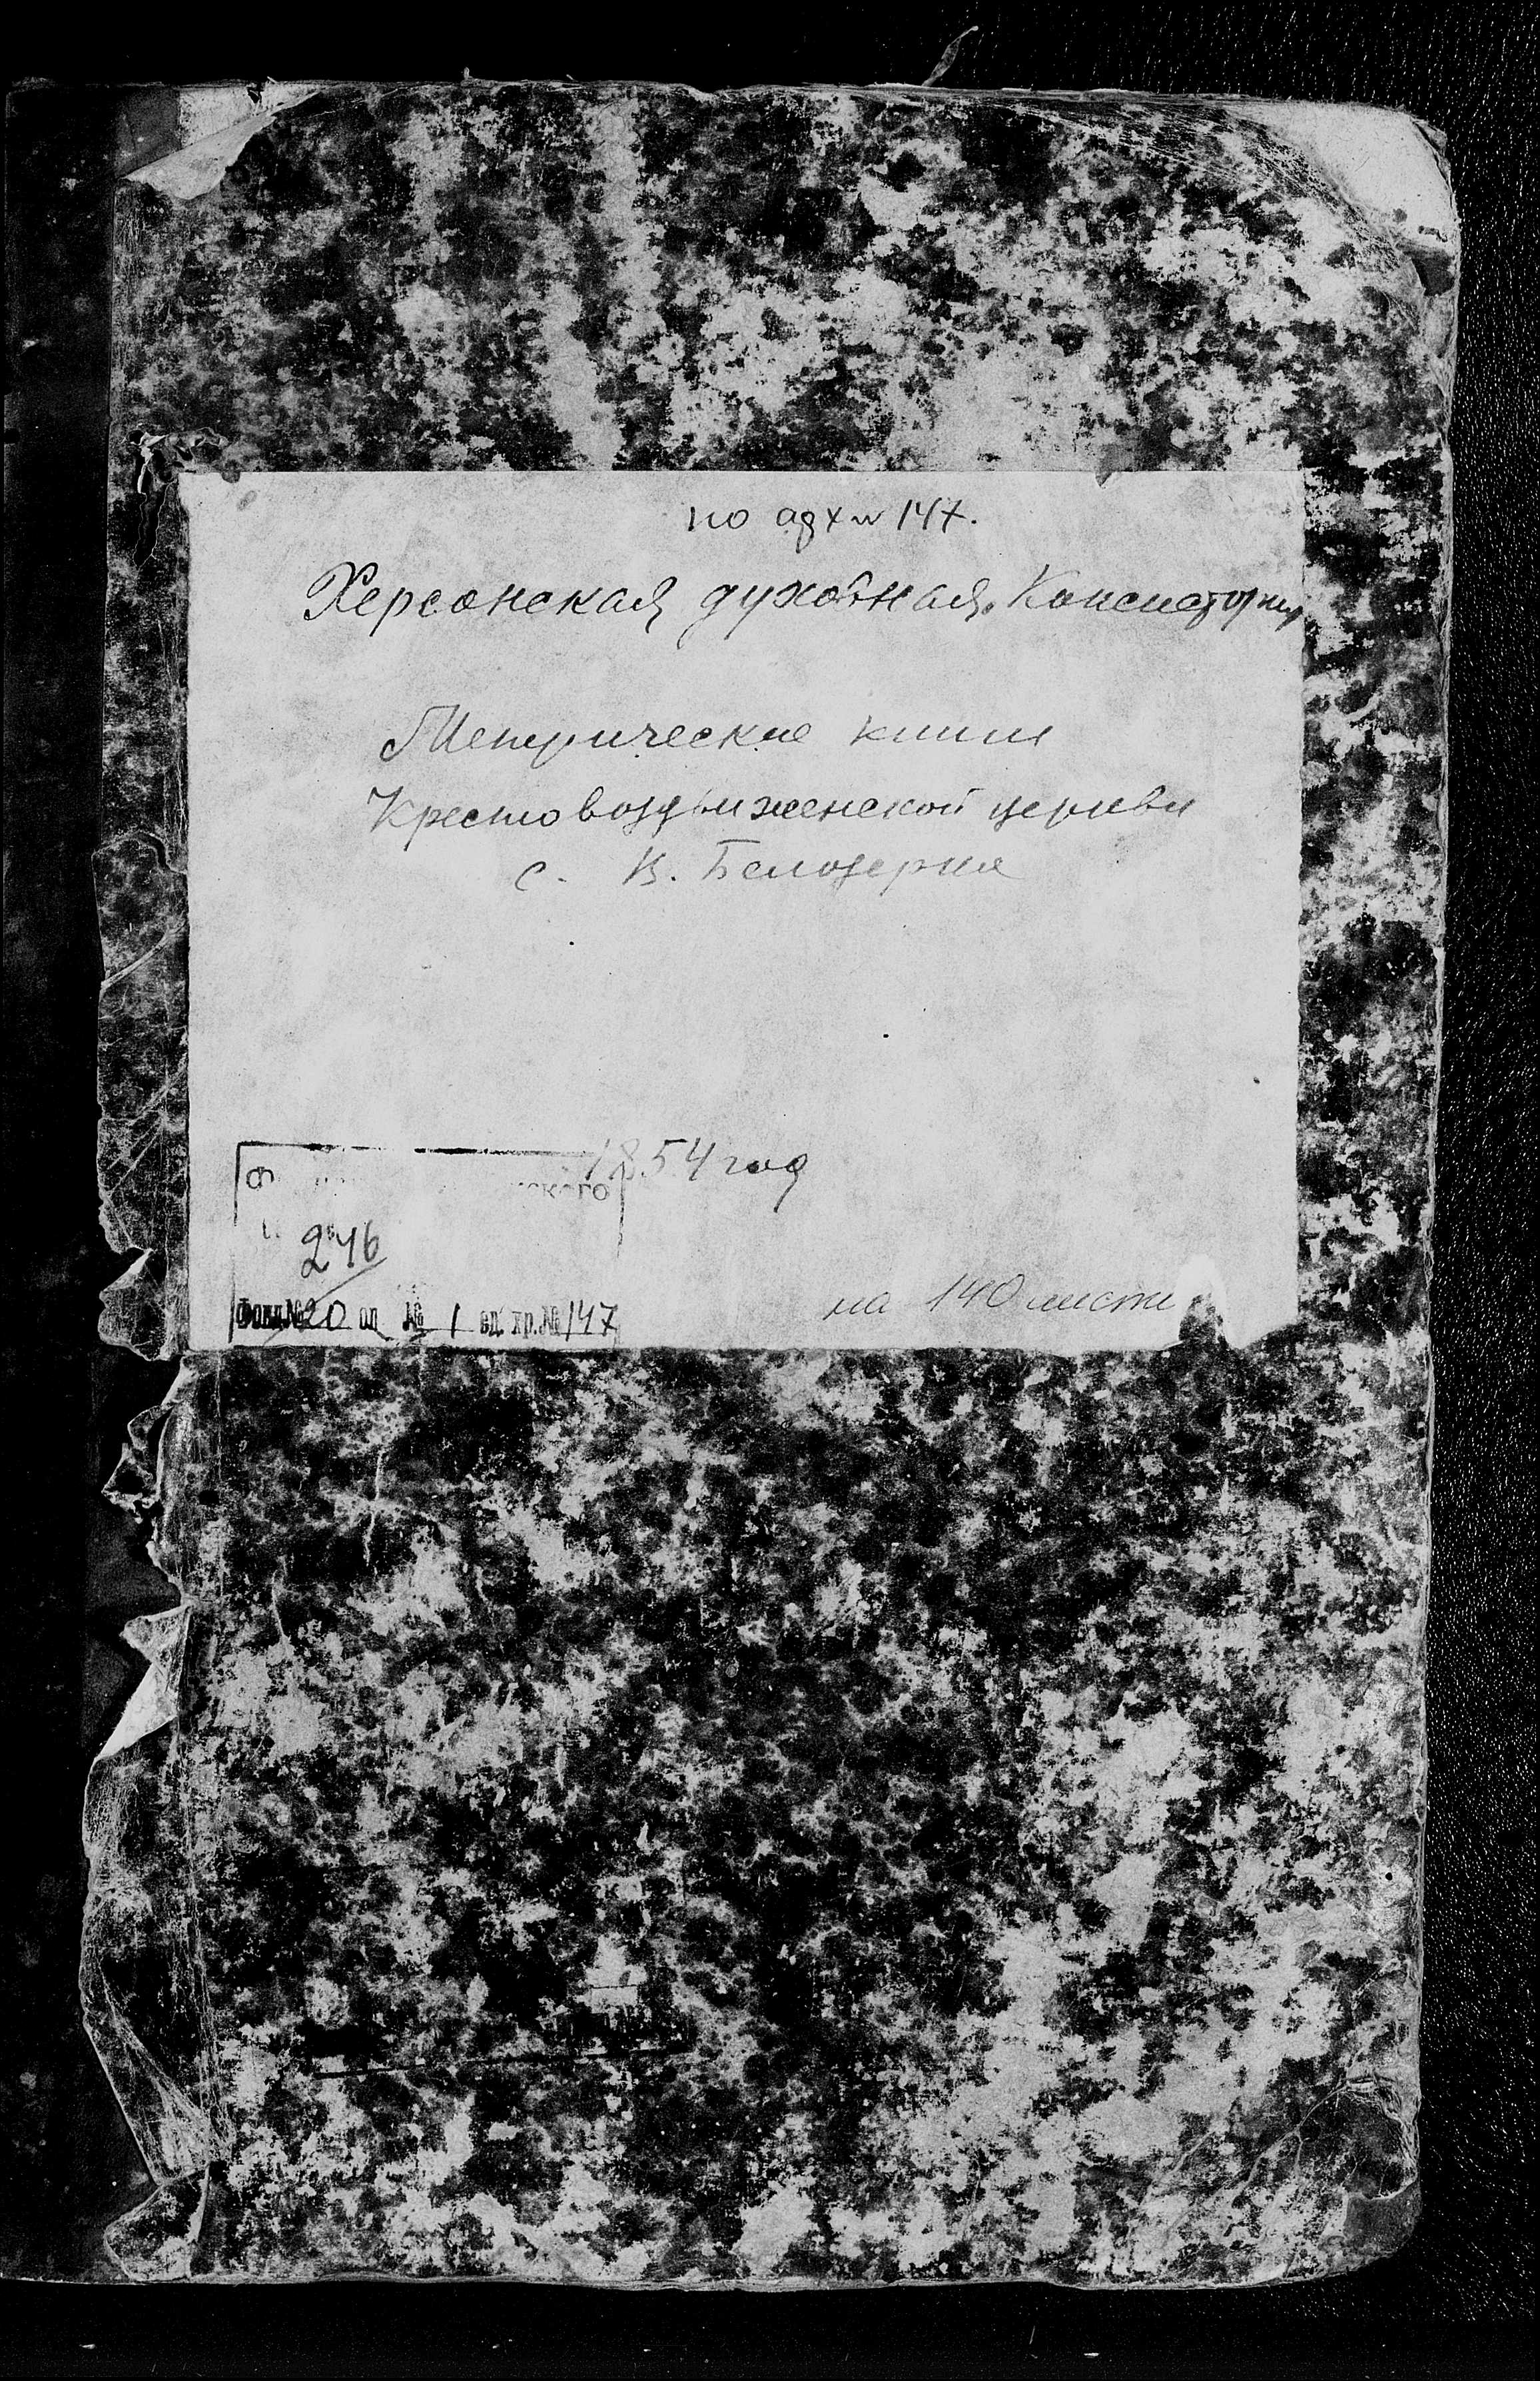 по ед хр 147.
Херсонская духовная Консистория
Метрические книги
Крестовоздвиженской церкви
с. В. Белозерка
1854 год
ского
246
Фонд № 20 оп № 1 ед. хр. № 147
на 140 листе